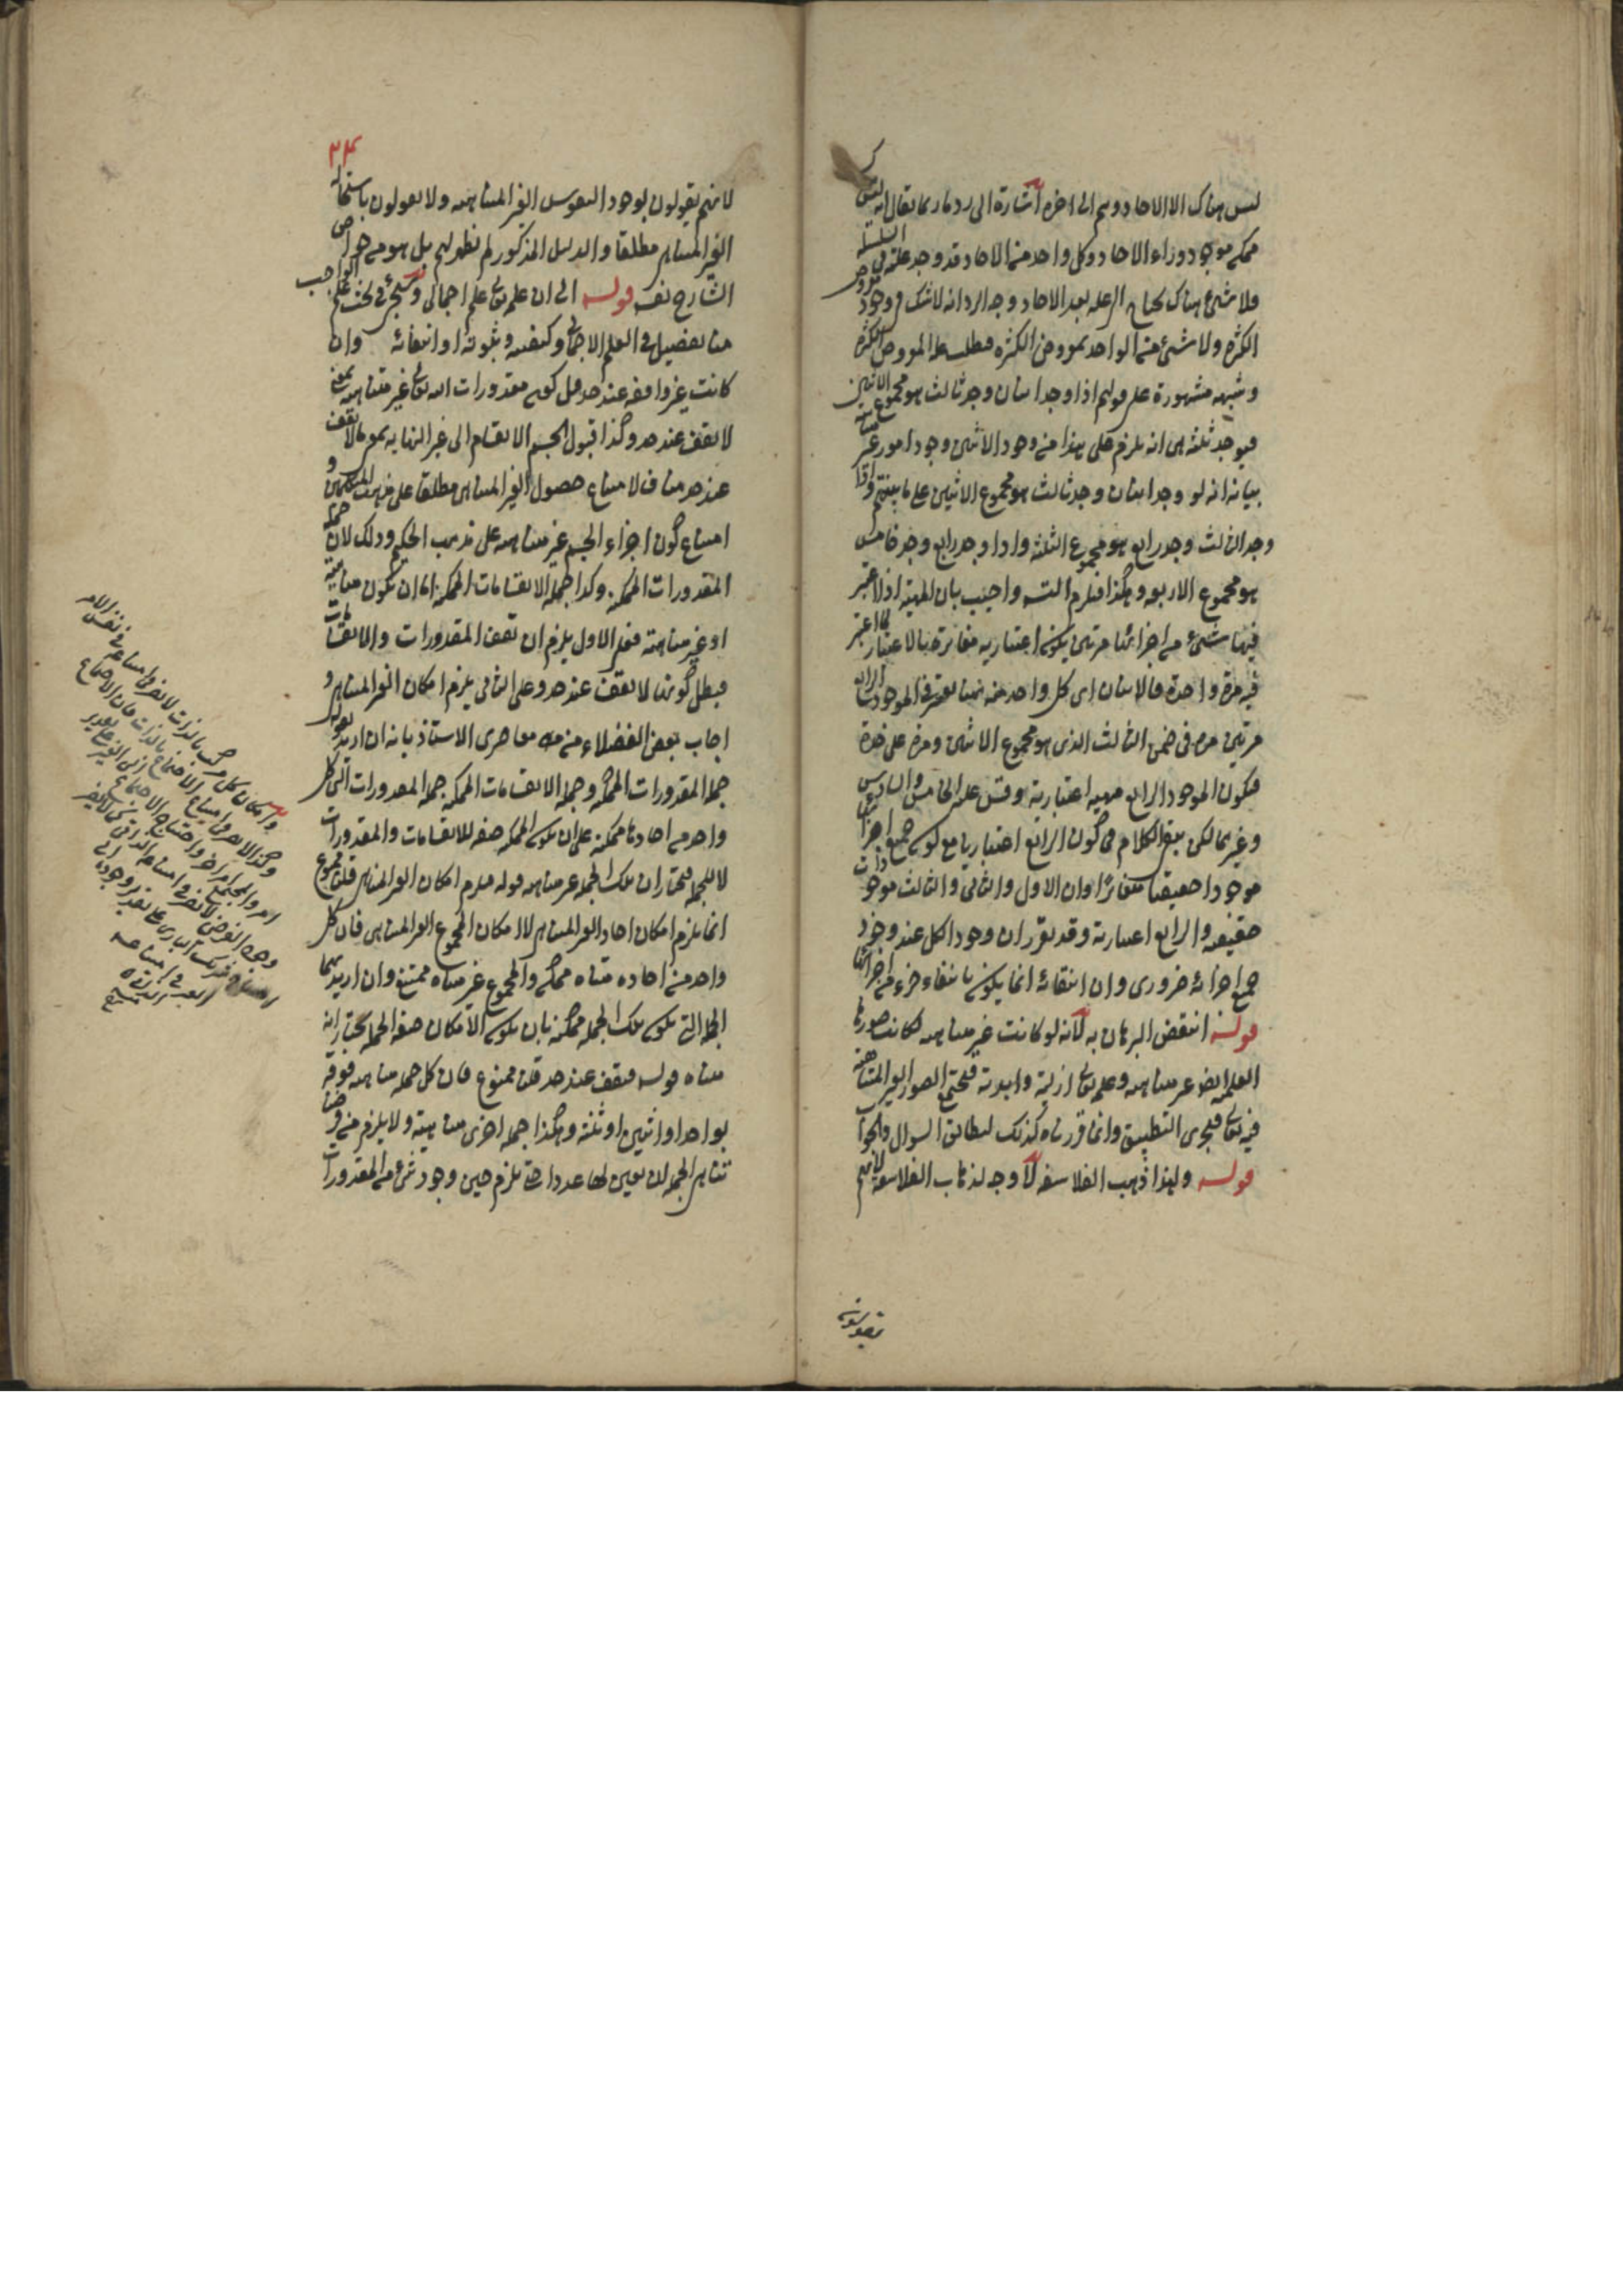 ليس هناك الا الاحاد وهم الى اخره اشارة الى رد ما ربما يقال انه ليس
ممكن موجود وراء الاحاد وكل واحد من الاحاد قد وجد علته في السلسلة
فلا شئ هناك يحتاج الى علة بعد الاحاد وجه الرد انه لا شك في وجود معروض
الكثرة ولا شئ من الواحد بمعروض الكثرة فطلب علة المعروض الكثرة
وشبهه مشهورة على قولهم اذا وجد اثنان وجد ثالث هو مجموع الاثنين
فيوجد ثلثة هي انه يلزم على هذا من وجود الاثنين وجود امور غير متناهية
بيانه انه لو وجد اثنان وجد ثالث هو مجموع الاثنين على ما بينتم واذا
وجد الثالث وجد رابع هو مجموع الثلثة واذا وجد رابع وجد خامس
هو مجموع الاربعة وهكذا فيلزم التسـ واجيب بان المهية اذا اعتبر
فيها شئ من اجزائها مرتين يكون اعتبارية مغايرة بالاعتبار لما اعتبر
فيه مرة واحدة فالاثنان اى كل واحد منه هنا يعتبر في الموجود الرابع
مرتين مرة في ضمن الثالث الذى هو مجموع الاثنين ومرة على حدة
فيكون الموجود الرابع مهية اعتبارية وقس عليه الخامس والسادس
وغيرهما لكن بقى الكلام في كون الرابع اعتباريا مع كون جميع اجزائه
موجودا حقيقيا متغايرا وان الاول والثانى والثالث موجودات
حقيقية والرابع اعتبارية وقد تقرر ان وجود الكل عند وجود
جميع اجزائه ضرورى وان انتفائه انما يكون بانتفاء جزء من اجزائها
قوله انتقض البرهان به لانه لو كانت غير متناهية لكانت صورها
العلمية ايضا غير متناهية وعلمه تعالى ازلية وابدية فيجتمع الصور الغير المتناهية
فيه تعالى فيجرى التطبيق وانما قررناه كذلك ليطابق السوال والجواب
قوله ولهذا ذهب الفلاسفة لا وجه لذهاب الفلاسفة لانهم
يقولون
٣٤
لانهم يقولون بوجود النفوس الغير المتناهية ولا يقولون باستحالة
الغير المتناهى مطلقا والدليل المذكور لم يظهر لهم بل هو من خواص
الشارح نفسه قوله الى ان علمه تعالى علم اجمالى وسيجئ في بحث علم الواجب
منا تفصيل في العلم الاجمالى وكيفيته وثبوته او انتفائه وان
كانت غير واقفة عند حد قيل كون مقدورات الله تعالى غير متناهية بمعنى
لا يقف عند حد وكذا قبول الجسم الانقسام الى غير النهاية بمعنى لا يقف
عند حد مناف لامتناع حصول الغير المتناهى مطلقا على مذهب المتكلمين و
امتناع كون اجزاء الجسم غير متناهية على مذهب الحكيم وذلك لان جملة
المقدورات الممكنة وكذا جملة الانقسامات الممكنة اما ان يكون متناهية
او غير متناهية فعلى الاول يلزم ان تقف المقدورات والانقسامات
فبطل كونها لا يقف عند حد وعلى الثانى يلزم امكان الغير المتناهى و
اجاب بعض الفضلاء من معاصرى الاستاذ بانه ان اريد بقوله
جملة المقدورات الممكنة وجملة الانقسامات الممكنة جملة المقدورات التى كل
واحد من احادها ممكنة على ان يكون الممكنة صفة للانقسامات والمقدورات
لا للجملة فنختار ان تلك الجملة غير متناهية قوله فيلزم امكان الغير المتناهى قلنا ممنوع
انما يلزم امكان احاد الغير المتناهى لا امكان المجموع الغير المتناهى فان كل
واحد من احاده متناه ممكن والمجموع غير متناه ممتنع وان اريد بهما
الجملة التى يكون تلك الجملة ممكنة بان يكون الامكان صفة الجملة نختار انه
متناه قوله فيقف عند حد قلنا ممنوع فان كل جملة متناهية فوقه
بواحد او اثنين او ثلثة وهكذا جملة اخرى متناهية ولا يلزم من فرض
تناهى الجملة ان يعين لها عدد احق يلزم حين وجود شئ من المقدورات